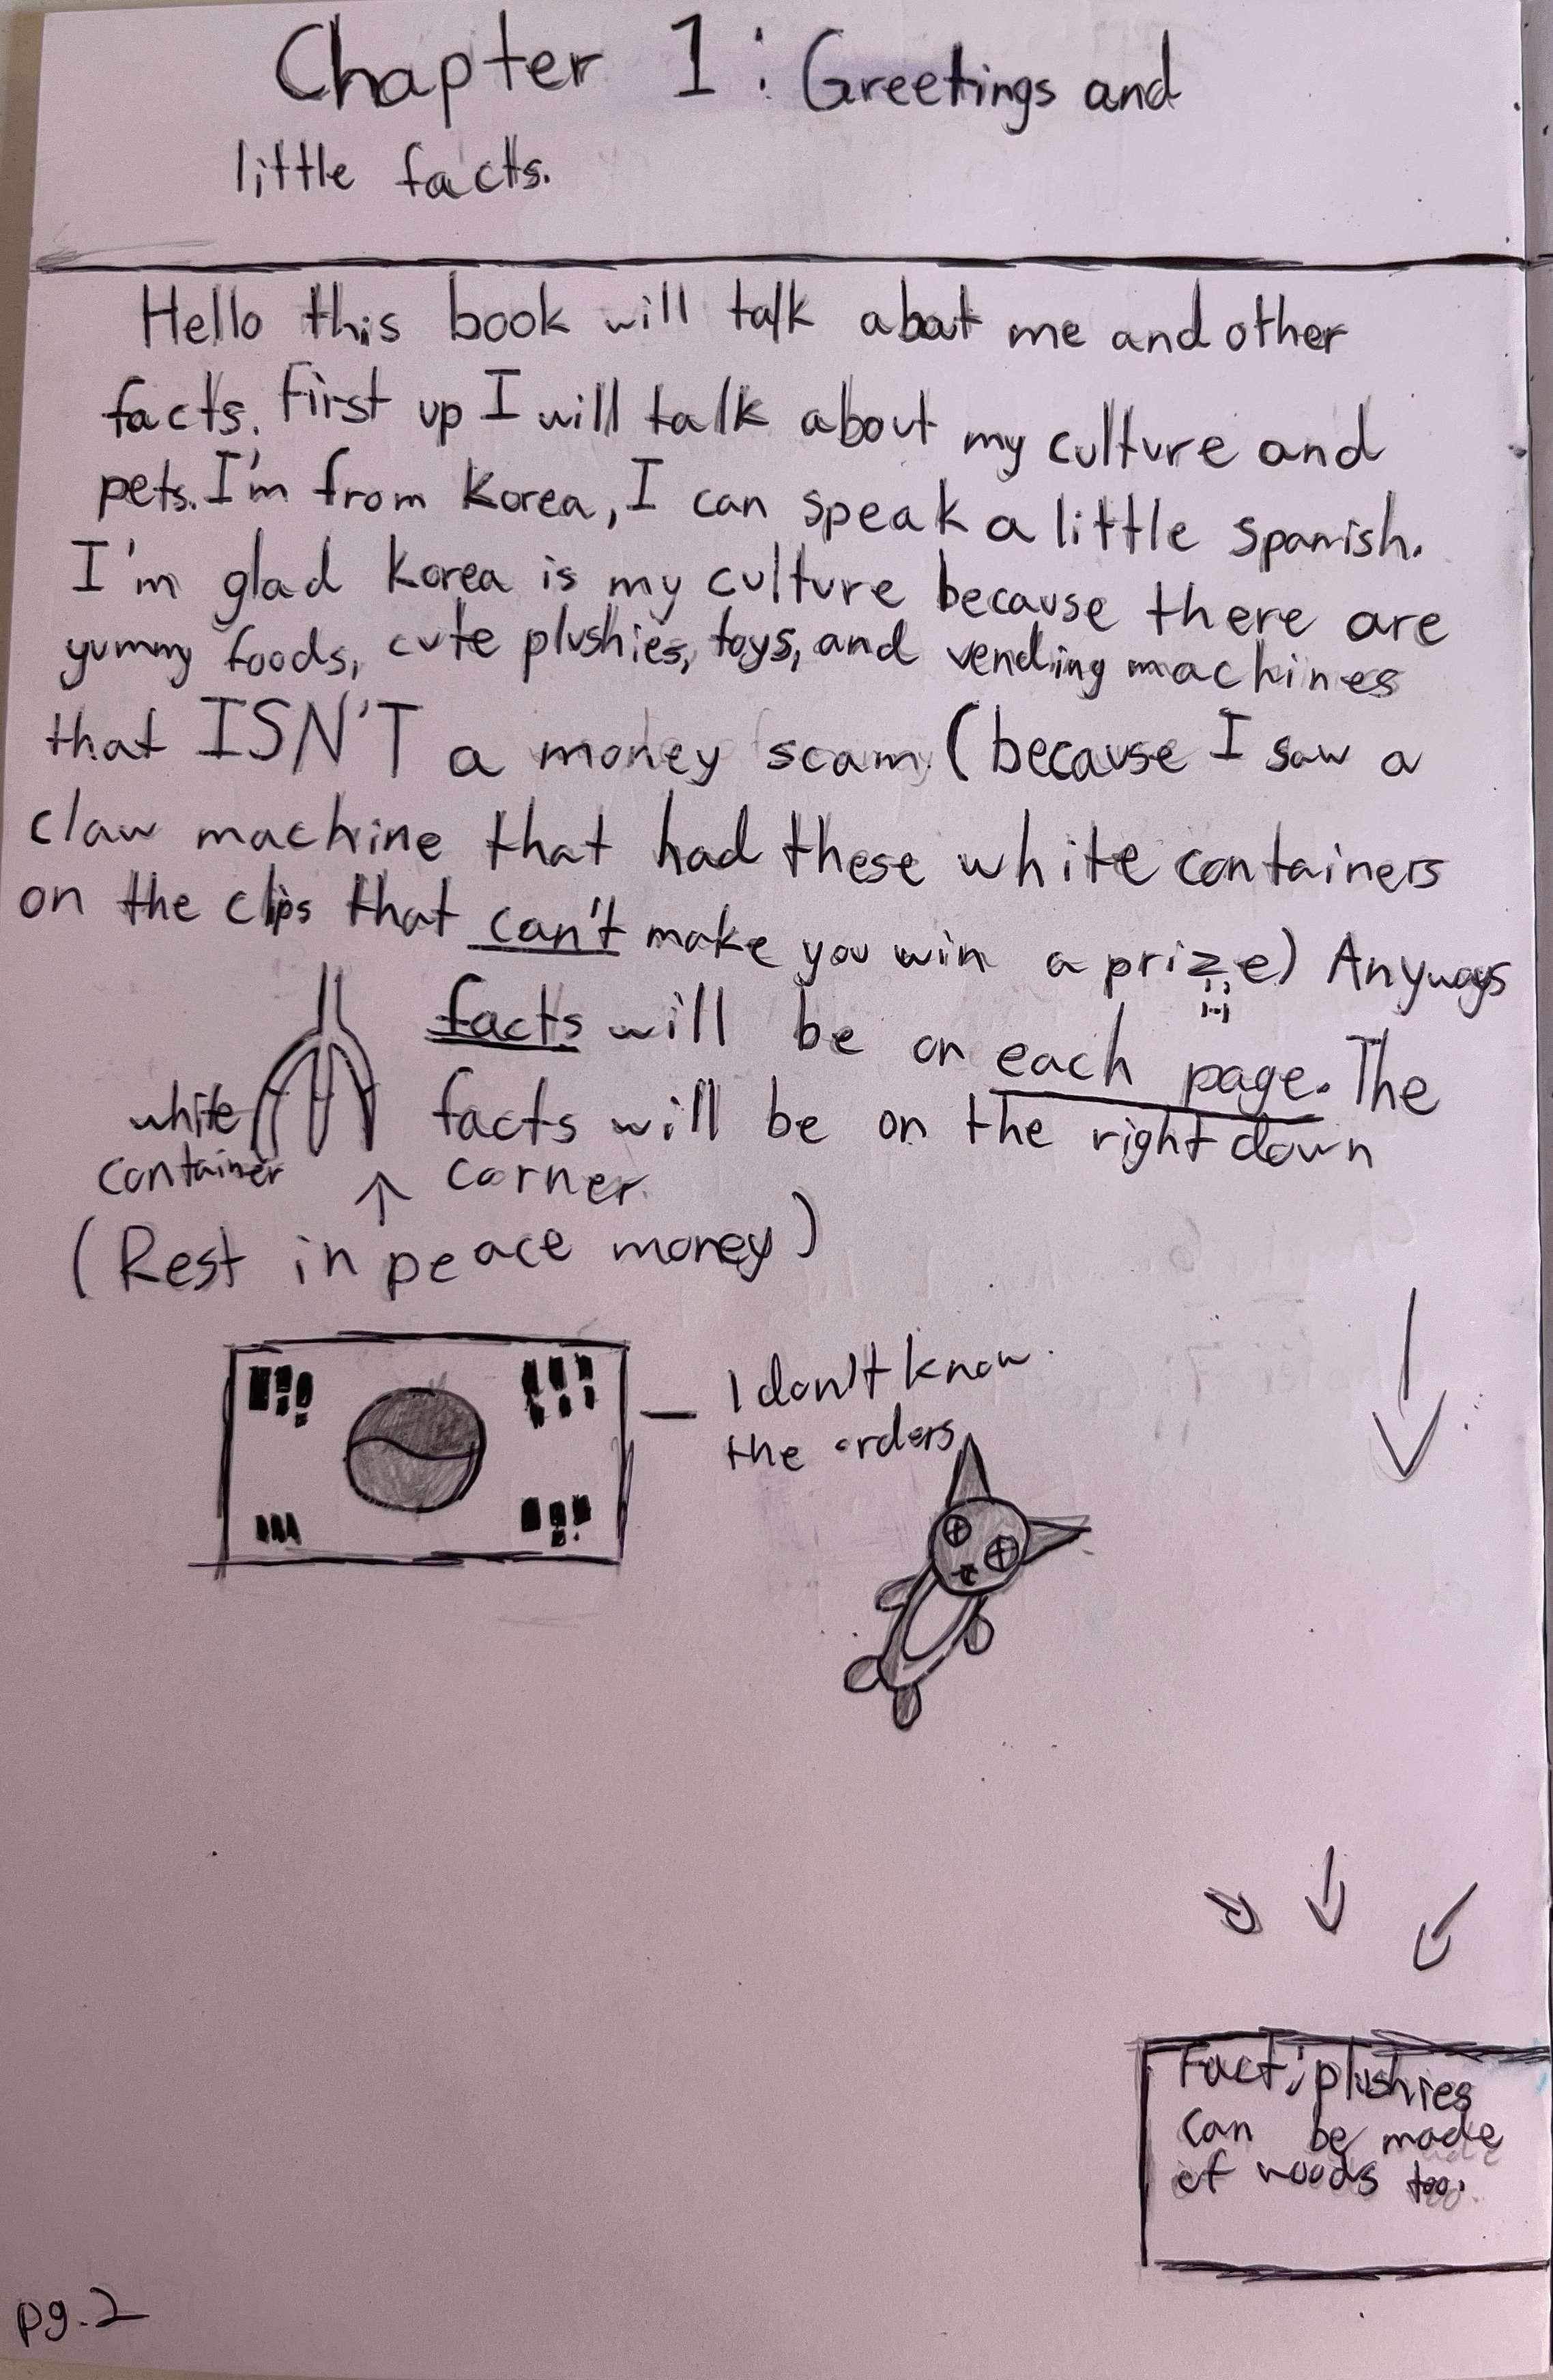 Chapter 1: Greetings and
little facts.
Hello this book will talk about me and other
facts. First up I will talk about my culture and
pets. I'm from Korea, I can speak a little spanish.
I'm glad Korea is my culture because there are
yummy foods, cute plushies, toys, and vending machines
that ISN'T a money scam (because I saw a
claw machine that had these white containers
on the clips that can't make you win a prize) Anyways
facts will be on each page. The
facts will be on the right down
corner.
white
container
(Rest in peace money)
I don't know
the orders
Fact: plushies
can be made
of woods too.
pg.2